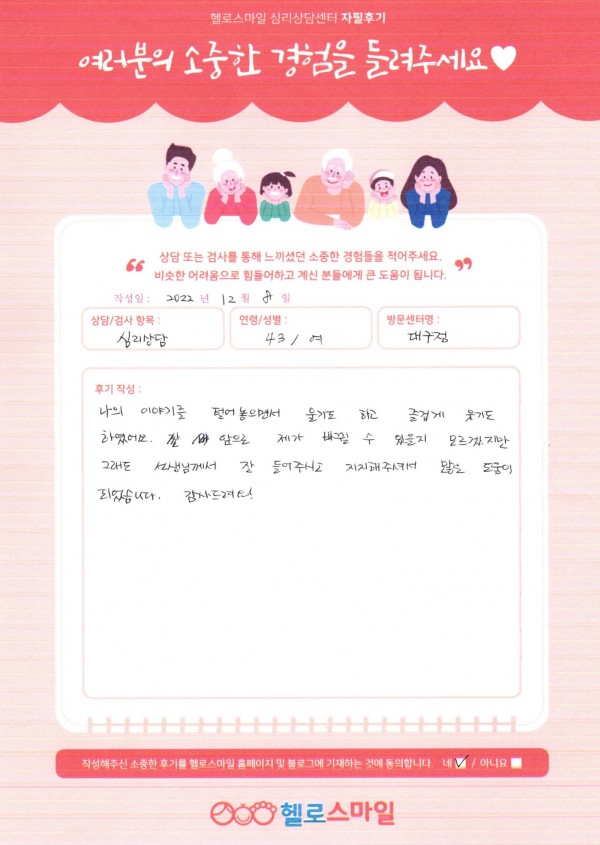 헬로스마일 심리상담센터 자필후기
여러분의 소중한 경험을 들려주세요♥
“ 상담 또는 검사를 통해 느끼셨던 소중한 경험들을 적어주세요.
비슷한 어려움으로 힘들어하고 계신 분들에게 큰 도움이 됩니다. ”
작성일 : 2022 년 12 월 8 일
상담/검사 항목 : 심리상담
연령/성별 : 43 / 여
방문센터명 : 대구점
후기 작성 :
나의 이야기를 털어놓으면서 울기도 하고 즐겁게 웃기도
하였어요. 앞으로 제가 바뀔 수 있을지 모르겠지만
그래도 선생님께서 잘 들어주시고 지지해주셔서 많은 도움이
되었습니다. 감사드려요!
작성해주신 소중한 후기를 헬로스마일 홈페이지 및 블로그에 기재하는 것에 동의합니다. 네 ✓ / 아니요
헬로스마일